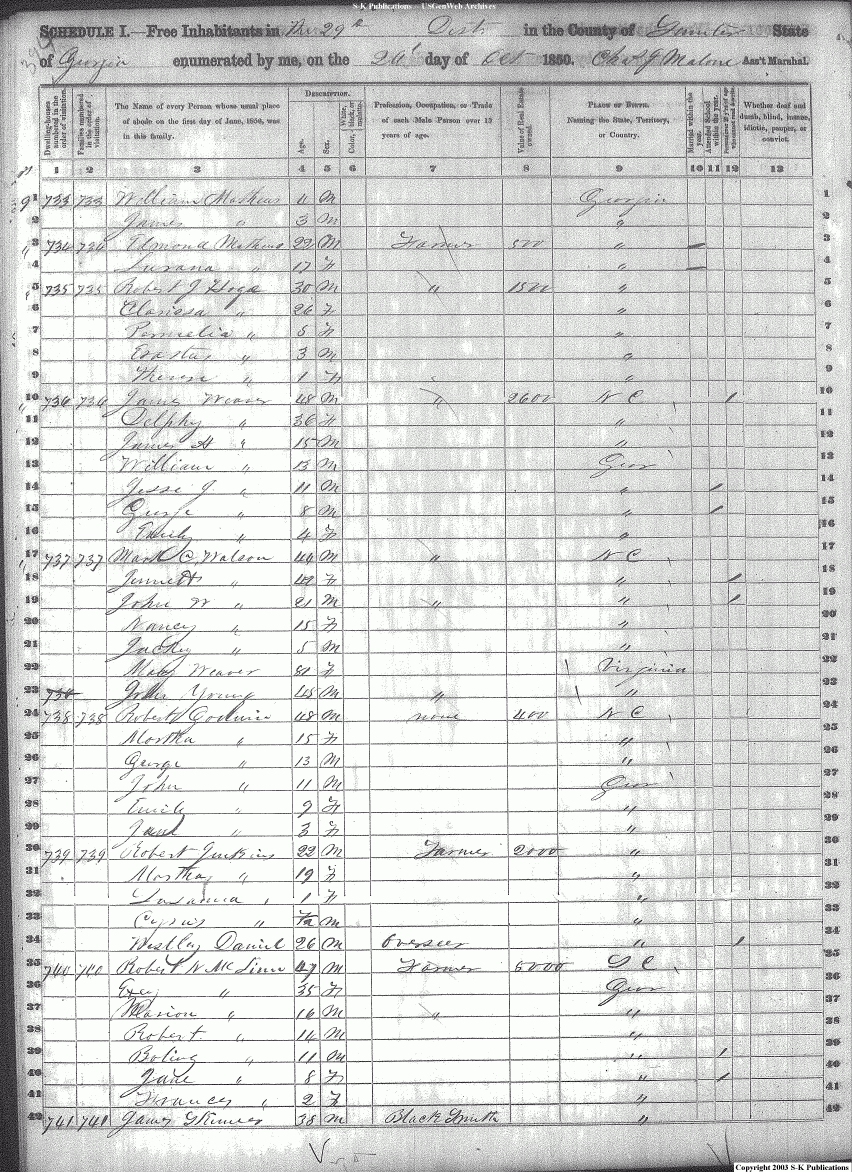 S-K Publications - USGenWeb Archives
SCHEDULE I.—Free Inhabitants in The 29th Dist in the County of Sumter State
of Georgia enumerated by me, on the 24 day of Oct 1850. Chas J Malone Ass't Marshal.
Dwelling-houses numbered in the order of visitation.
Families numbered in the order of visitation.
The Name of every Person whose usual place of abode on the first day of June, 1850, was in this family.
DESCRIPTION.
Age.
Sex.
Color, White, black, or mulatto.
Profession, Occupation, or Trade of each Male Person over 15 years of age.
Value of Real Estate owned.
PLACE OF BIRTH. Naming the State, Territory, or Country.
Married within the year.
Attended School within the year.
Persons over 20 y'rs of age who cannot read & write.
Whether deaf and dumb, blind, insane, idiotic, pauper, or convict.
1 2 3 4 5 6 7 8 9 10 11 12 13
1 733 733 William Mathews 4 M Georgia 1
2 James " 3 M " 2
3 734 734 Edmond Mathews 22 M Farmer 500 " 3
4 Susana " 17 F " 4
5 735 735 Robert J 30 M " 1500 " 5
6 Clarissa " 26 F " 6
7 Permelia " 5 F " 7
8 Erastus " 3 M " 8
9 " 1 F " 9
10 736 736 James Weaver 48 M " 2600 N C 1 10
11 Delphy " 36 F " 11
12 James H " 15 M " 12
13 William " 13 M Geor 13
14 Jesse J " 11 M " 1 14
15 George " 8 M " 1 15
16 Emily " 4 F " 16
17 737 737 Mark C. Watson 44 M " N C 17
18 " F " 1 18
19 John W " 21 M " " 1 19
20 Nancy " 15 F " 20
21 " 5 M " 21
22 Mary Weaver F Virginia 22
23 John Young 45 M " " 23
24 738 738 Robert Goodwin 48 M none 400 N C 24
25 Martha " 15 F " 25
26 George " 13 M " 26
27 John " 11 M Geor 27
28 Emily " 9 F " 28
29 Jane " 3 F " 29
30 739 739 Robert Jenkins 22 M Farmer 2000 " 30
31 Martha " 19 F " 31
32 Susanna " 1 F " 32
33 " M " 33
34 Westley Daniel 26 M Overseer " 1 34
35 740 740 Robert N 47 M Farmer 5000 S C 35
36 " 35 F Geor 36
37 Marion " 16 M " " 37
38 Robert " 14 M " 38
39 Boling " 11 M " 1 39
40 Jane " 8 F " 1 40
41 Frances " 2 F " 41
42 741 741 James Skinner 38 M Black Smith " 42
Copyright 2003 S-K Publications